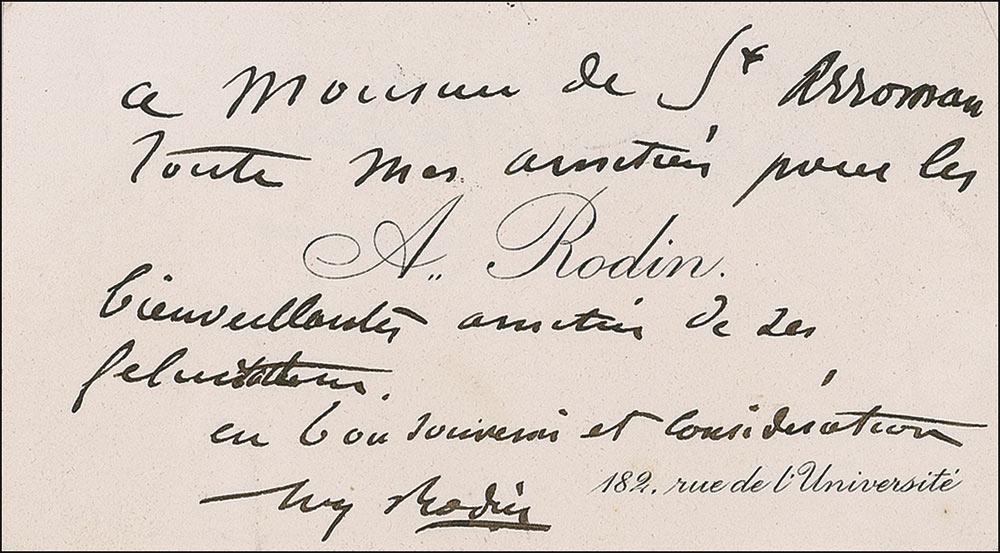 a Monsieur de St Arroman
Toute mes amitiés pour les
A. Rodin.
bienveillantes amitiés de ses
felicitations
en bon souvenir et considération
182, rue de l'Université
Aug Rodin